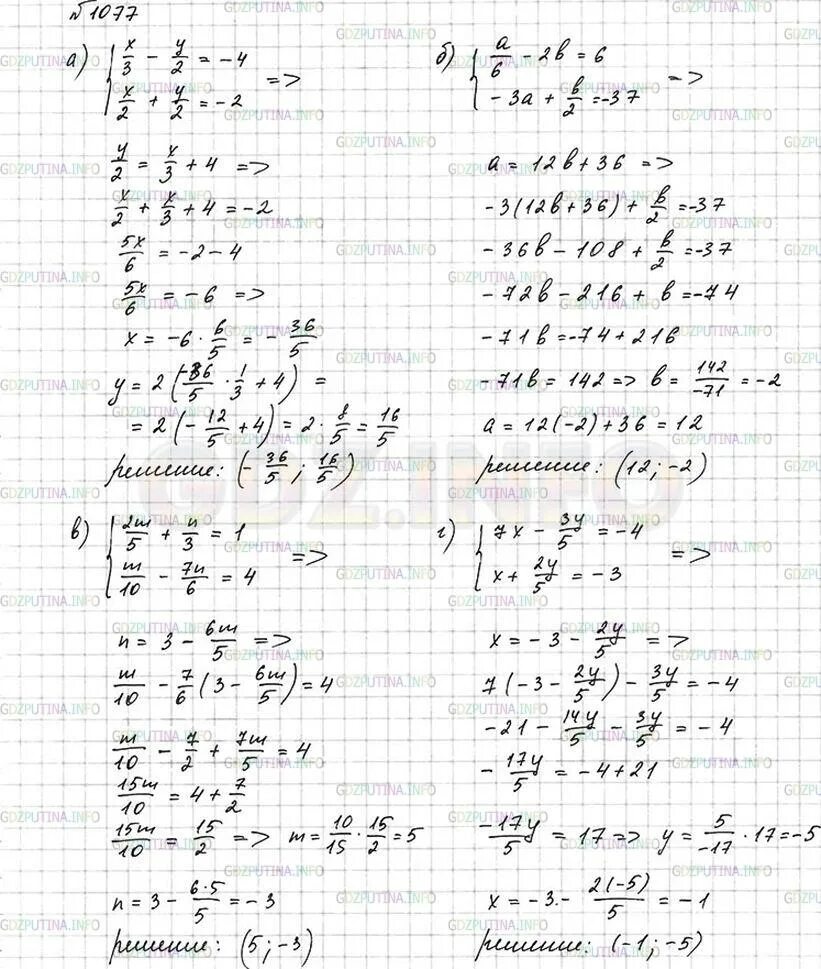 №1077
а) { x/3 - y/2 = -4
x/2 + y/2 = -2 =>
y/2 = x/3 + 4 =>
x/2 + x/3 + 4 = -2
5x/6 = -2 - 4
5x/6 = -6 =>
x = -6 · 6/5 = -36/5
y = 2(-36/5 · 1/3 + 4) =
= 2(-12/5 + 4) = 2 · 8/5 = 16/5
решение: (-36/5 ; 16/5)
б) { a/6 - 2b = 6
-3a + b/2 = -37 =>
a = 12b + 36 =>
-3(12b + 36) + b/2 = -37
-36b - 108 + b/2 = -37
-72b - 216 + b = -74
-71b = -74 + 216
-71b = 142 => b = 142/-71 = -2
a = 12(-2) + 36 = 12
решение: (12; -2)
в) { 2m/5 + n/3 = 1
m/10 - 7n/6 = 4 =>
n = 3 - 6m/5 =>
m/10 - 7/6(3 - 6m/5) = 4
m/10 - 7/2 + 7m/5 = 4
15m/10 = 4 + 7/2
15m/10 = 15/2 => m = 10/15 · 15/2 = 5
n = 3 - 6·5/5 = -3
решение: (5; -3)
г) { 7x - 3y/5 = -4
x + 2y/5 = -3 =>
x = -3 - 2y/5 =>
7(-3 - 2y/5) - 3y/5 = -4
-21 - 14y/5 - 3y/5 = -4
-17y/5 = -4 + 21
-17y/5 = 17 => y = 5/-17 · 17 = -5
x = -3 - 2(-5)/5 = -1
решение: (-1; -5)
GDZ.INFO
GDZPUTINA.INFO